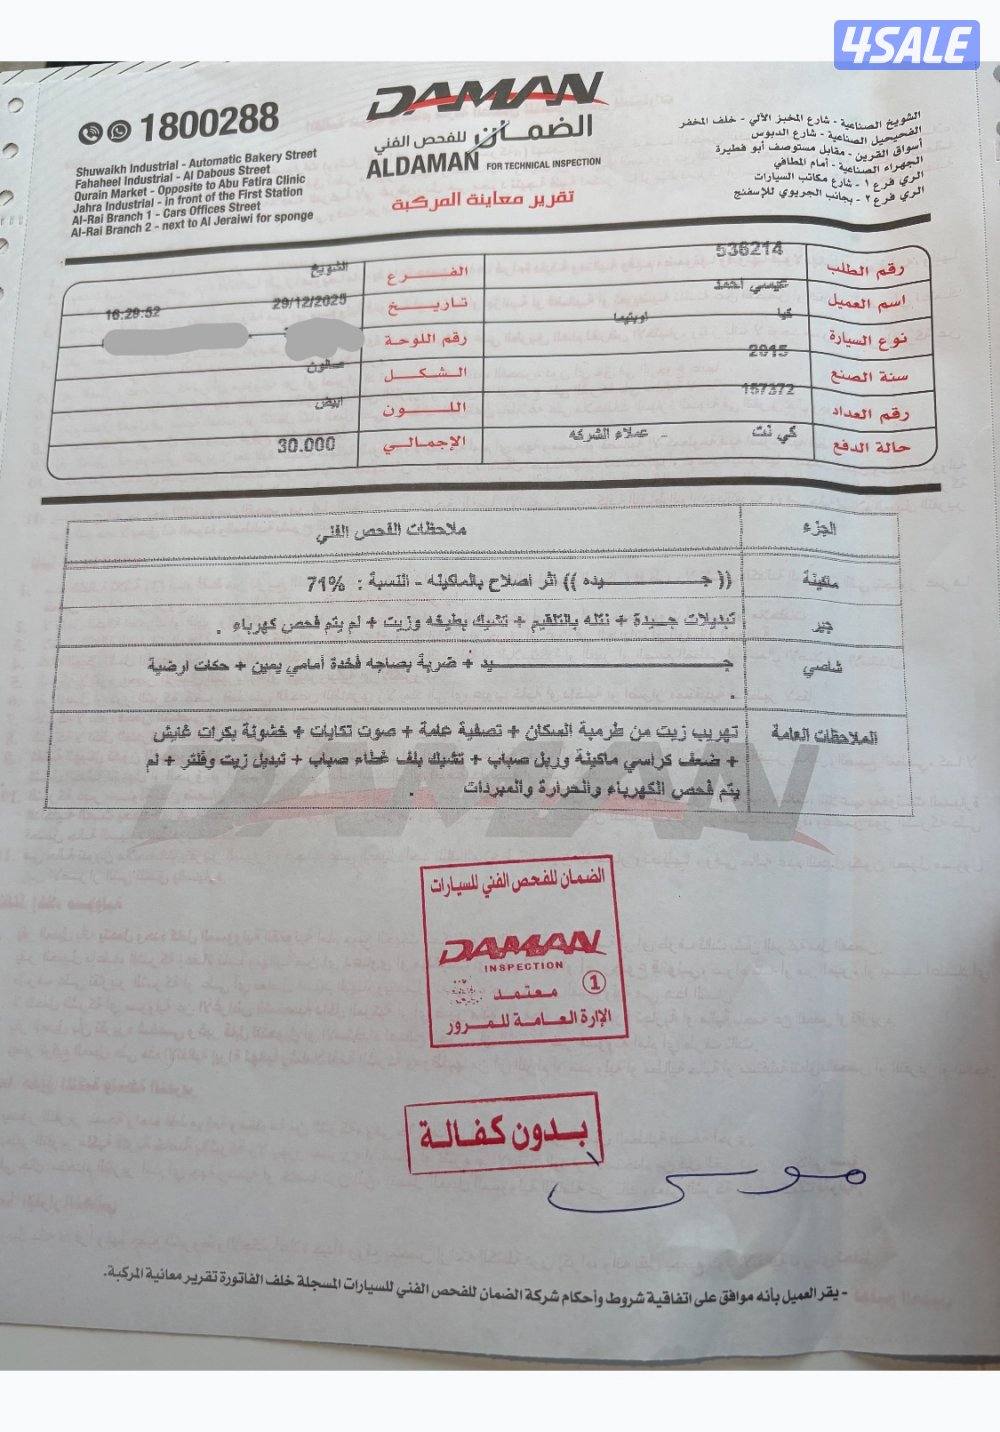 4SALE
1800288
Shuwaikh Industrial - Automatic Bakery Street
Fahaheel Industrial - Al Dabous Street
Qurain Market - Opposite to Abu Fatira Clinic
Jahra Industrial - in front of the First Station
Al-Rai Branch 1 - Cars Offices Street
Al-Rai Branch 2 - next to Al Jeraiwi for sponge
DAMAN
الضمان للفحص الفني
ALDAMAN FOR TECHNICAL INSPECTION
تقرير معاينة المركبة
الشويخ الصناعية - شارع المخبز الآلي - خلف المخفر
الفحيحيل الصناعية - شارع الدبوس
أسواق القرين - مقابل مستوصف أبو فطيرة
الجهراء الصناعية - أمام المطافي
الري فرع ١ - شارع مكاتب السيارات
الري فرع ٢ - بجانب الجريوي للإسفنج
رقم الطلب 536214 الفـــرع الشويخ
اسم العميل عيسى احمد تاريخ 29/12/2025 16:29:52
نوع السيارة كيا اوبتيما رقم اللوحة
سنة الصنع 2015 الشكل صالون
رقم العداد 157372 اللـــون ابيض
حالة الدفع كي نت - عملاء الشركه الإجمالي 30.000
الجزء ملاحظات الفحص الفني
ماكينة (( جـــــيده )) اثر اصلاح بالماكينه - النسبة : 71%
جير تبديلات جـيدة + نتله بالتلقيم + تشيك بطيخه وزيت + لم يتم فحص كهرباء .
شاصي جـــــيد + ضربة بصاجه فخدة أمامي يمين + حكات ارضية
.
الملاحظات العامة تهريب زيت من طرمبة السكان + تصفية علمة + صوت تكايات + خشونة بكرات غايش
+ ضعف كراسي ماكينة وربل صباب + تشيك بلف غطاء صباب + تبديل زيت وفلتر + لم
يتم فحص الكهرباء والحرارة والمبردات .
DAMAN
الضمان للفحص الفني للسيارات
DAMAN
INSPECTION
معتمد 1
الإرة العامة للمرور
بدون كفالة
موسى
- يقر العميل بأنه موافق على اتفاقية شروط وأحكام شركة الضمان للفحص الفني للسيارات المسجلة خلف الفاتورة تقرير معانية المركبة.